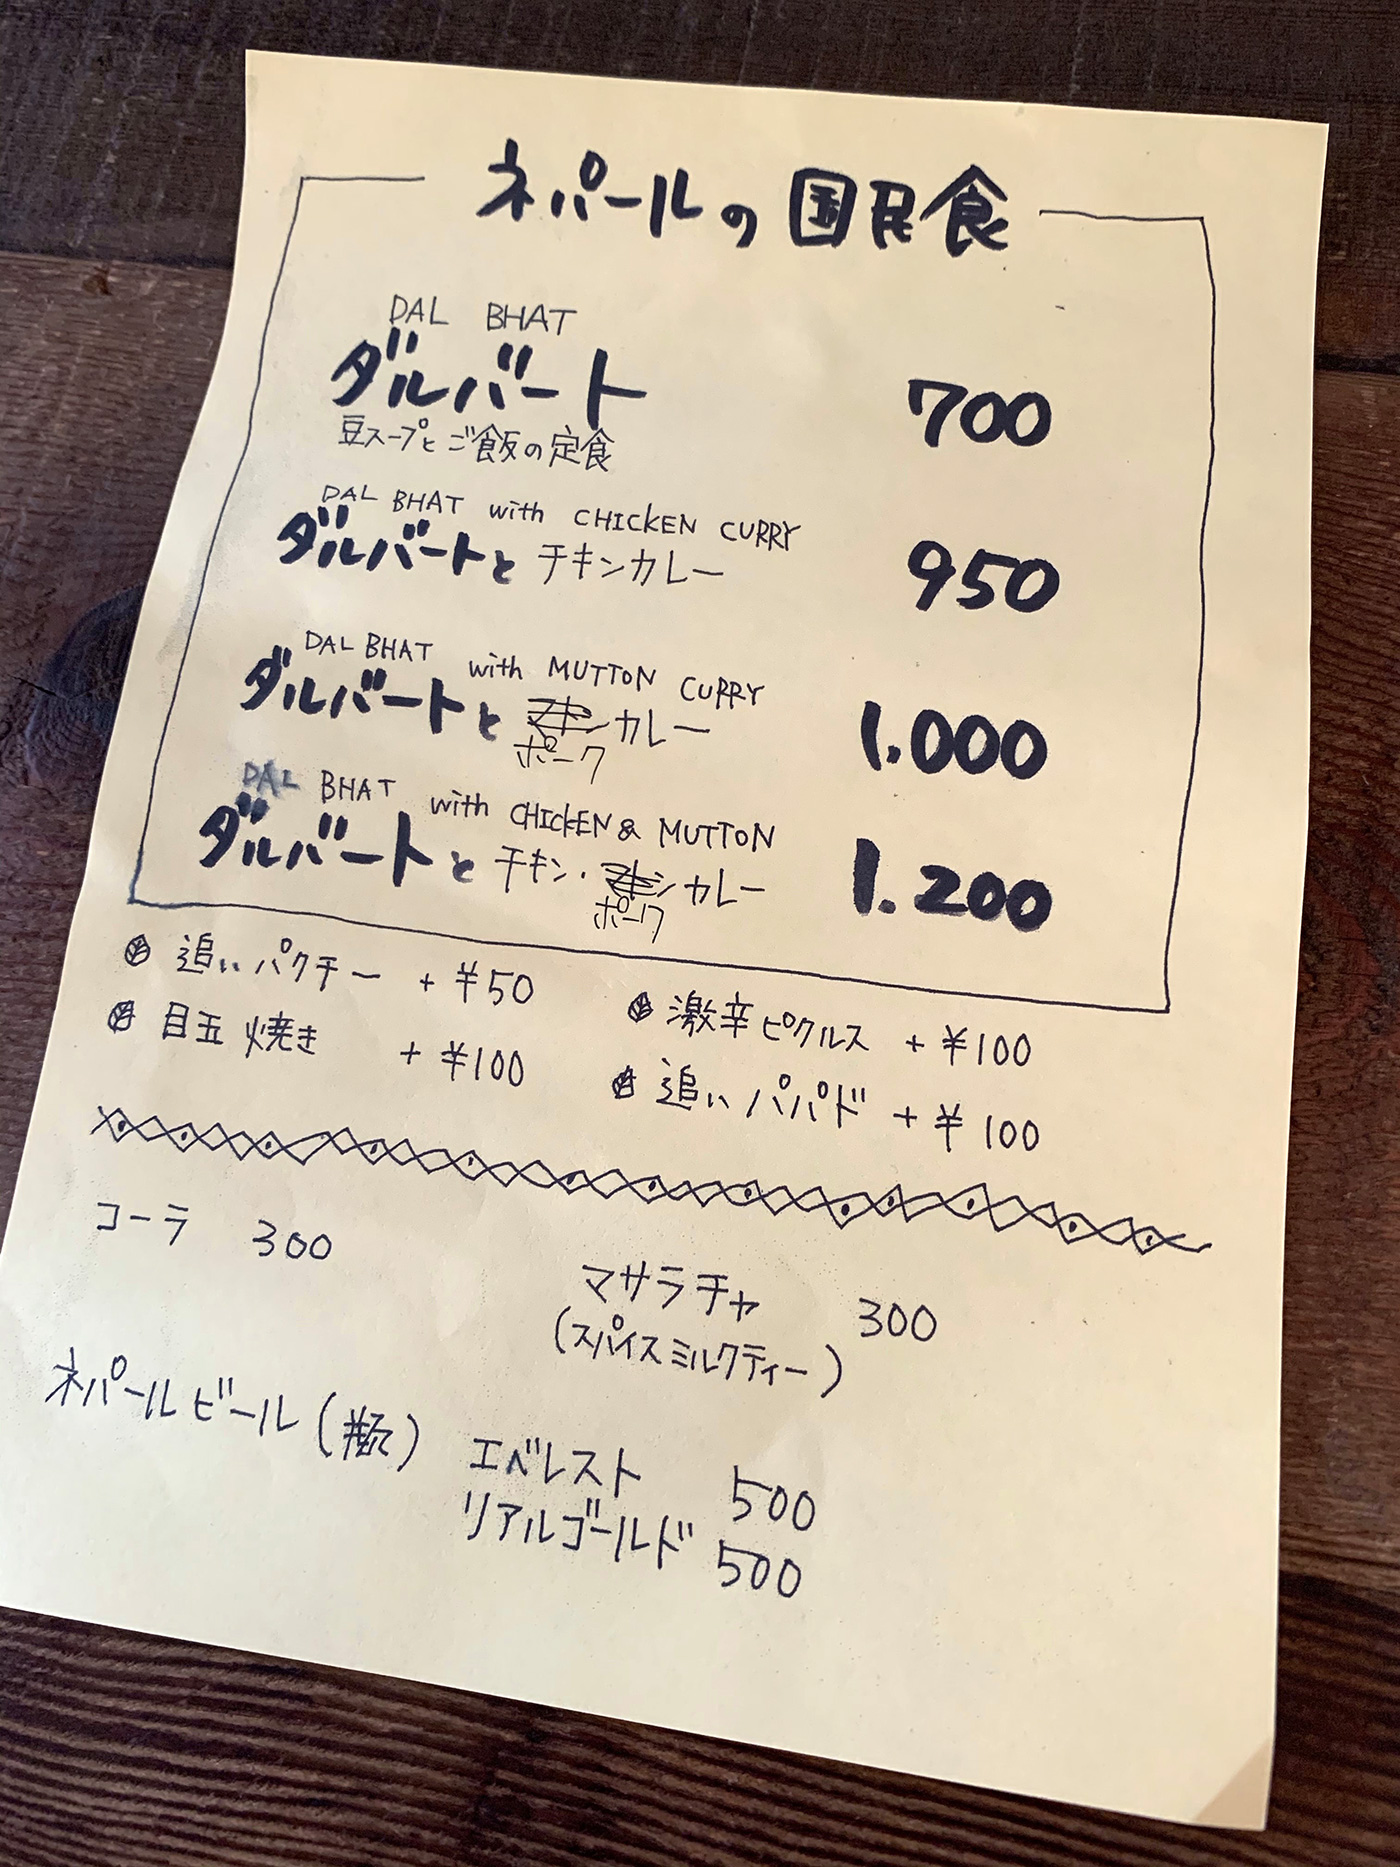 ネパールの国民食
DAL BHAT
ダルバート 700
豆スープとご飯の定食
DAL BHAT with CHICKEN CURRY
ダルバートとチキンカレー 950
DAL BHAT with MUTTON CURRY
ダルバートと カレー 1.000
ポーク
DAL BHAT with CHICKEN & MUTTON
ダルバートとチキン・ カレー 1.200
ポーク
追いパクチー +¥50
激辛ピクルス +¥100
目玉焼き +¥100
追いパパド +¥100
コーラ 300
マサラチャ 300
(スパイスミルクティー)
ネパールビール(瓶) エベレスト 500
リアルゴールド 500